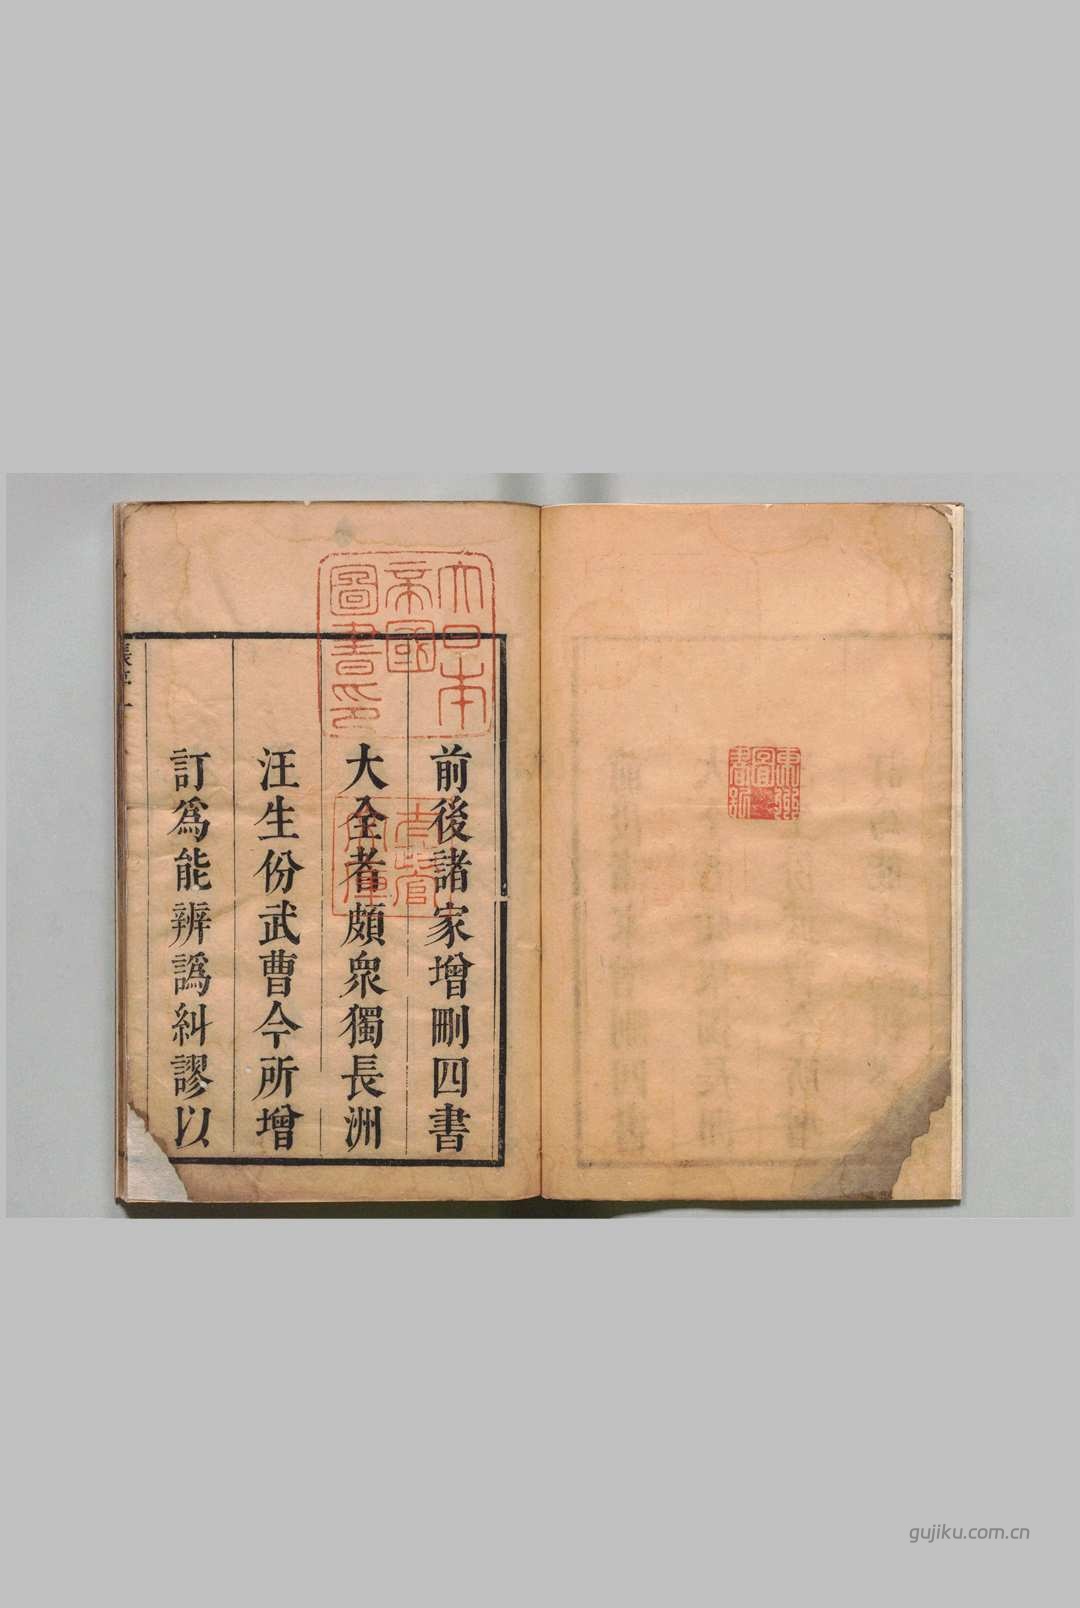 前後諸家增刪四書
大全者頗衆獨長洲
汪生份武曹今所增
訂爲能辨譌糾謬以
大日本
帝國
圖書印
gujiku.com.cn